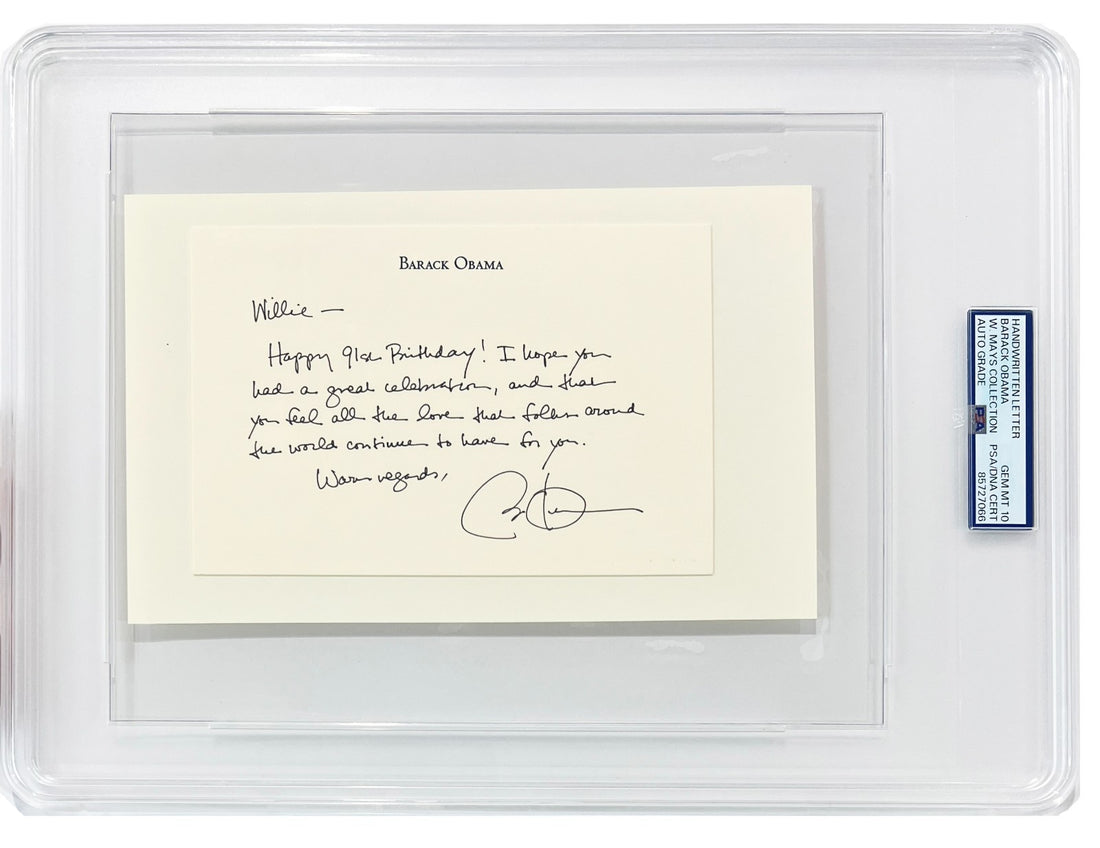 BARACK OBAMA
Willie —
Happy 91st Birthday! I hope you
had a great celebration, and that
you feel all the love that folks around
the world continue to have for you.
Warm regards,
HANDWRITTEN LETTER
BARACK OBAMA GEM MT 10
W. MAYS COLLECTION PSA/DNA CERT
AUTO GRADE 85727066
PSA